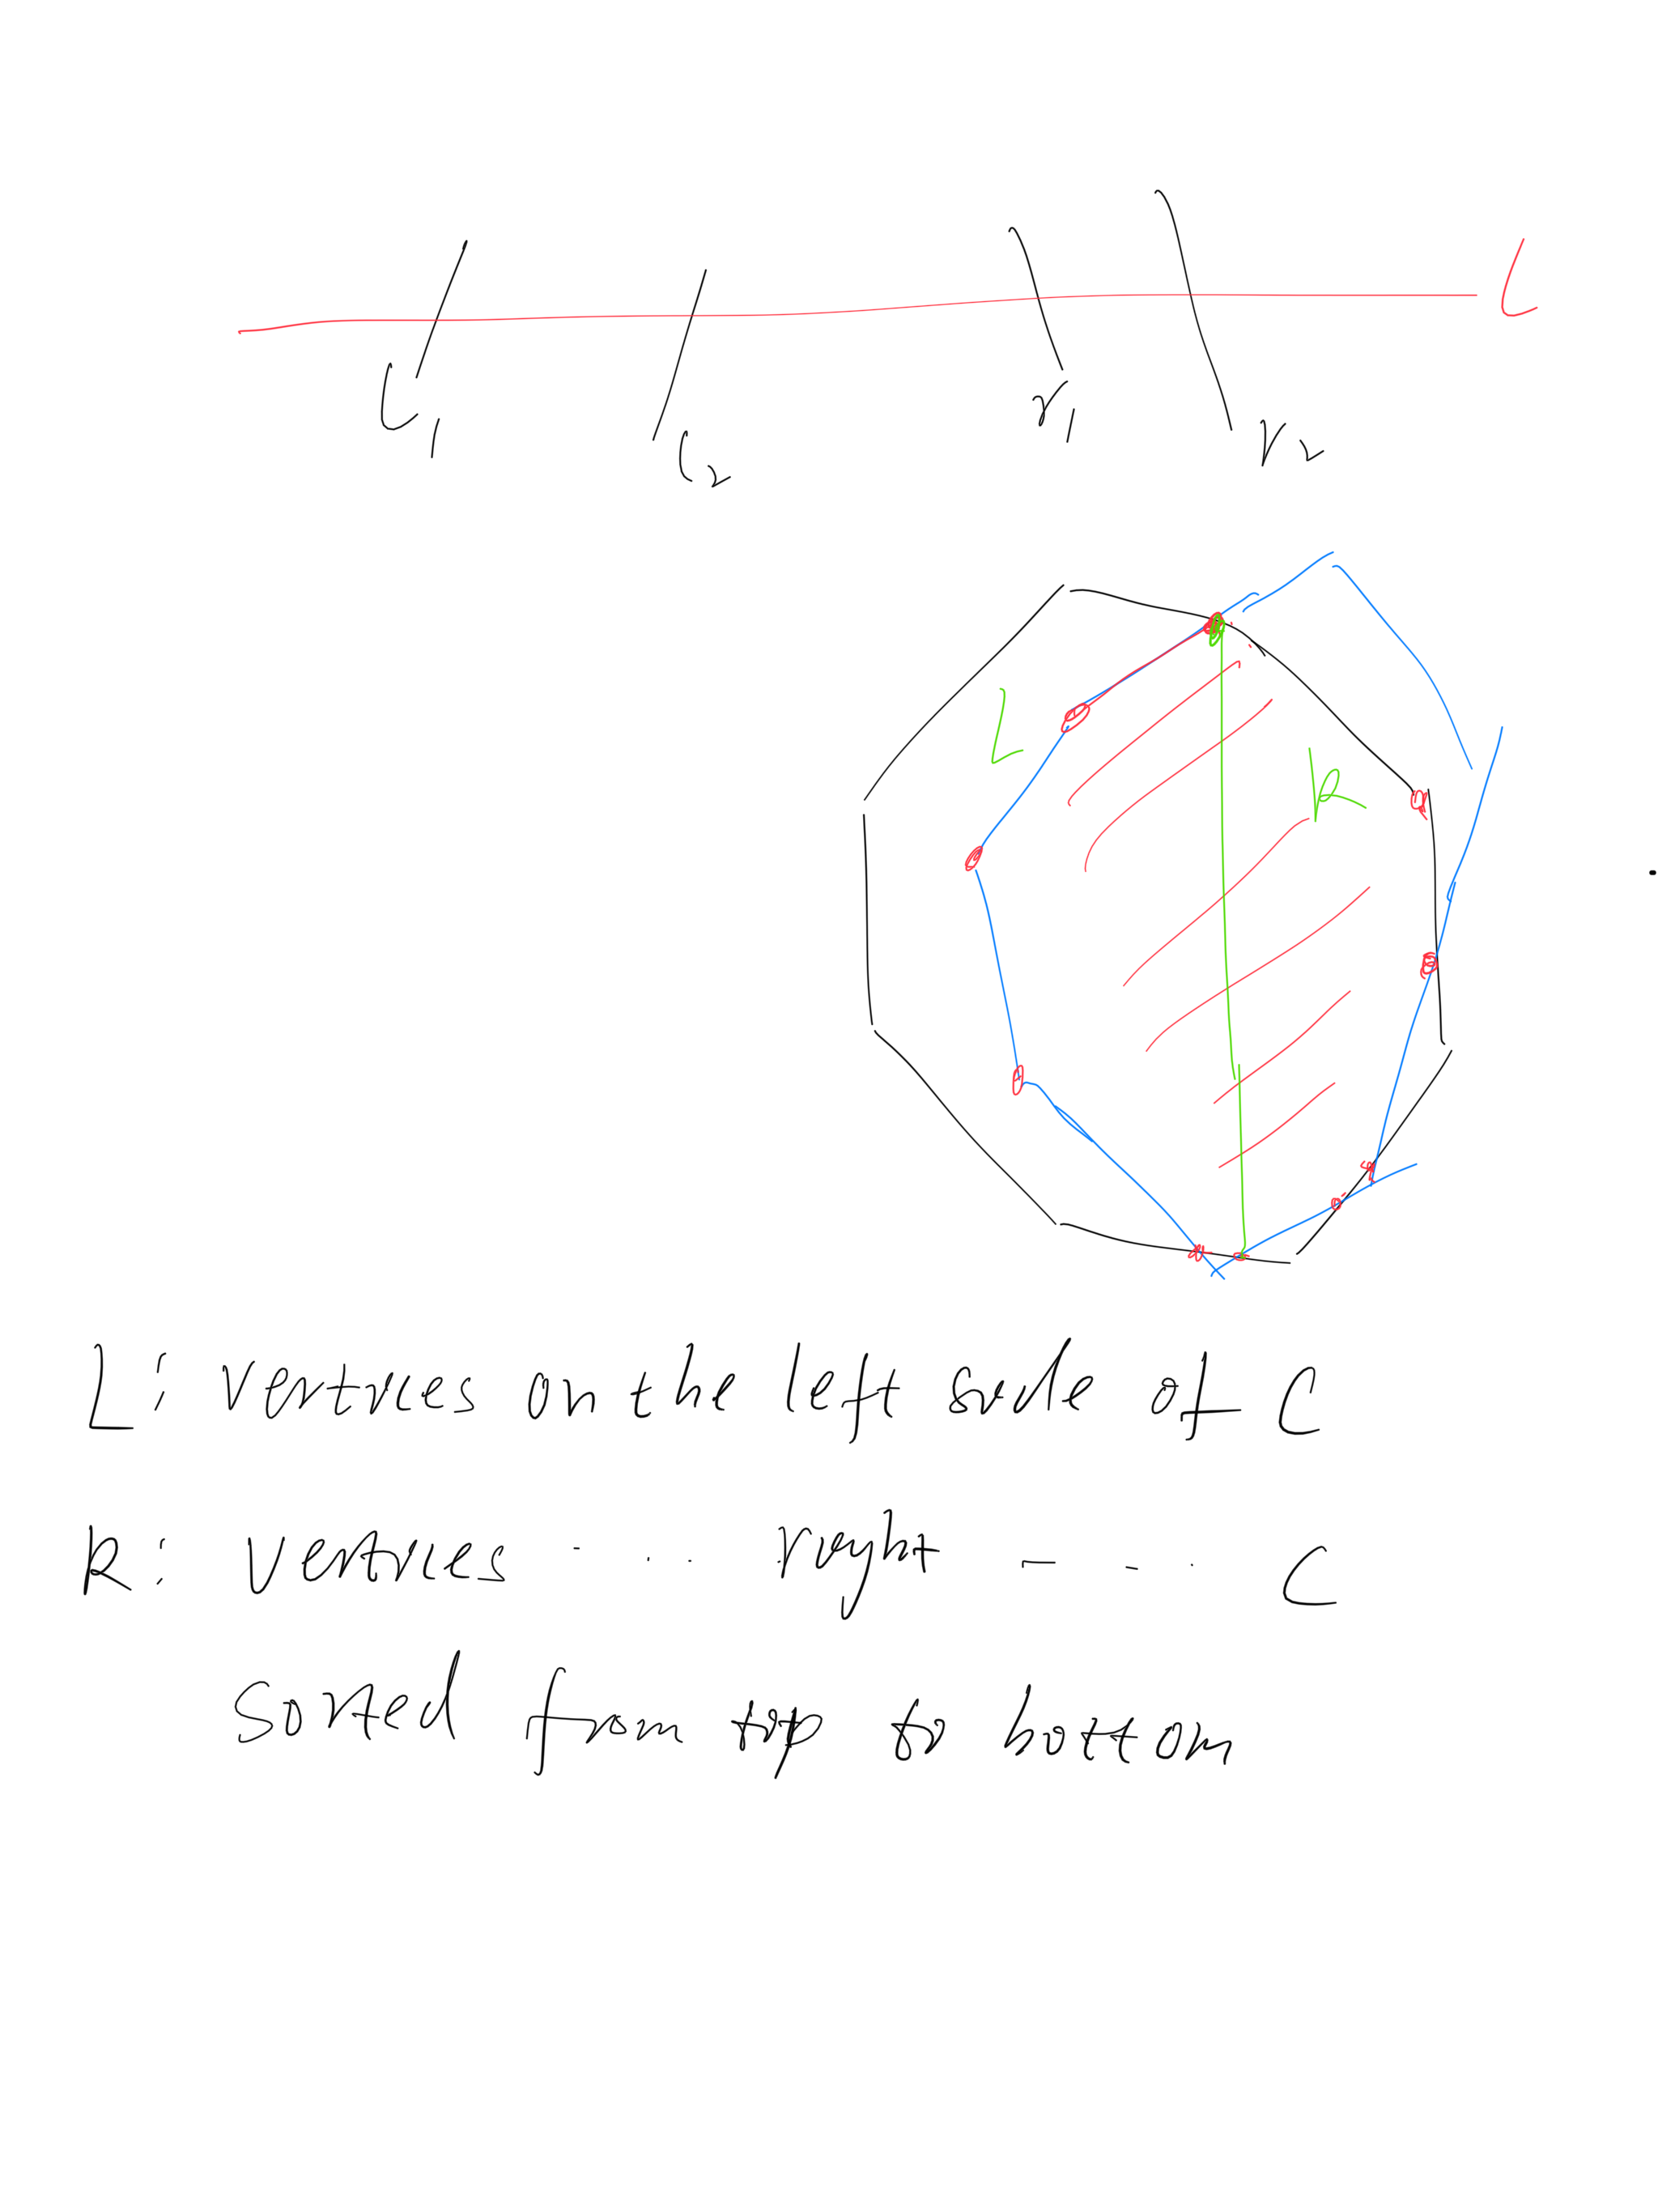 l
l1
l2
r1
r2
L
R
L: vertices on the left side of C
R: vertices - . . . right - - . C
sorted from top to bottom